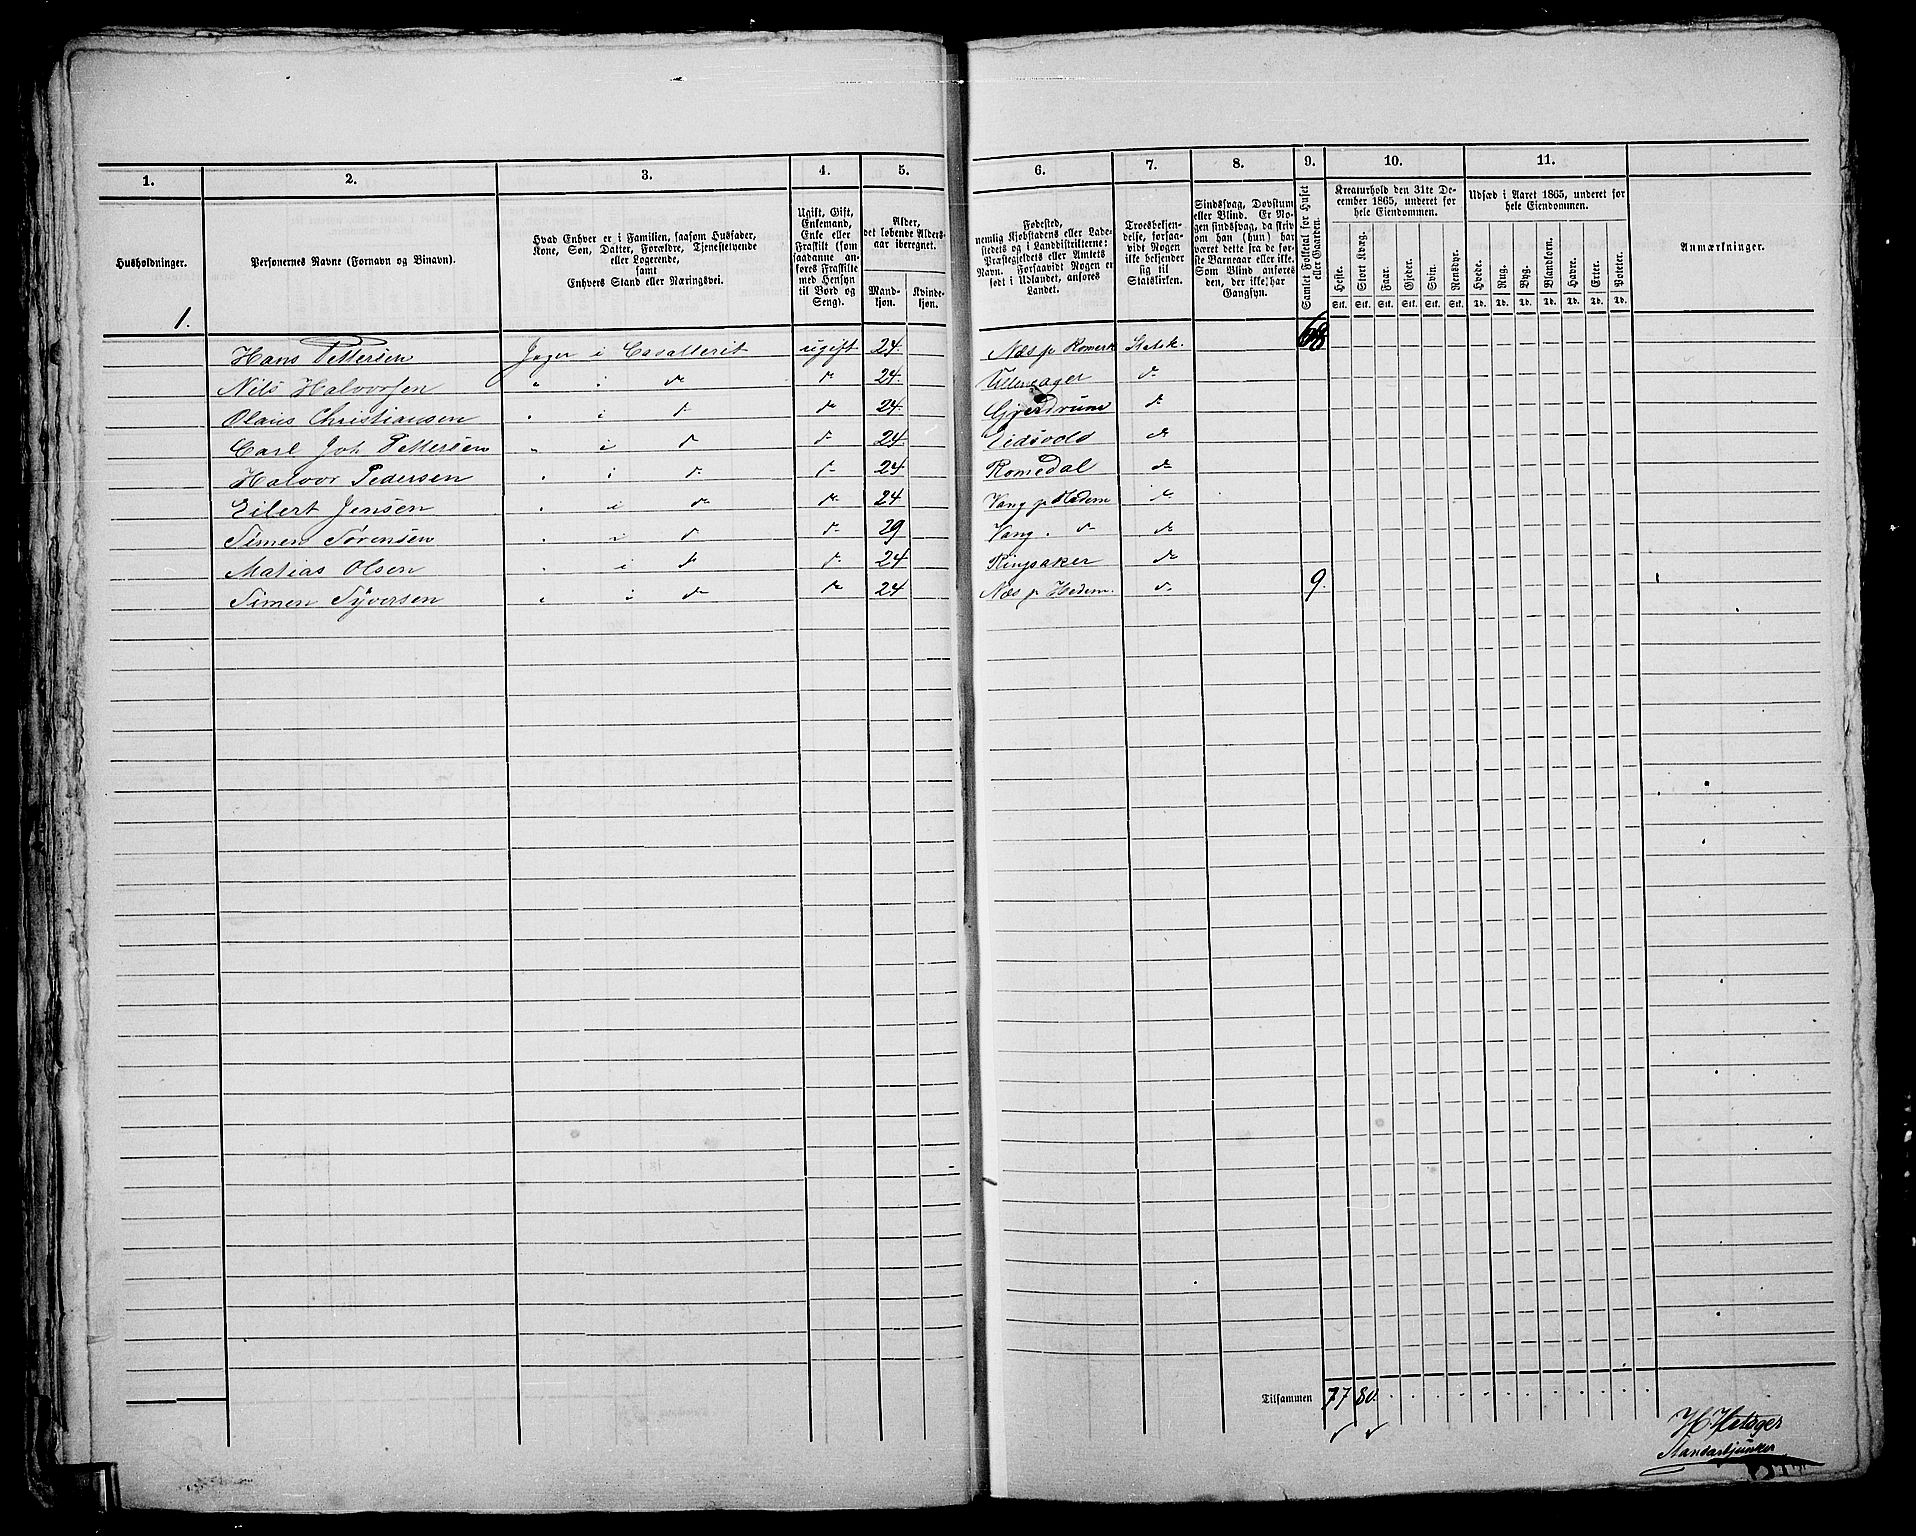 1. 2. 3. 4. 5. 6. 7. 8. 9. 10. 11.
Husholdninger.
1.
Personernes Navne (Fornavn og Binavn).
Hvad Enhver er i Familien, saasom Husfader,
Kone, Søn, Datter, Forældre, Tjenestetyende
eller Logerende,
samt
Enhvers Stand eller Næringsvei.
Ugift, Gift,
Enkemand,
Enke eller
Fraskilt (som
saadanne an-
føres Fraskilte
med Hensyn
til Bord og
Seng).
Alder,
det løbende Alders-
aar iberegnet.
Mand-
kjøn.
Kvinde-
kjøn.
Fødested,
nemlig Kjøbstadens eller Lade-
stedets og i Landdistrikterne:
Præstegjeldets eller Amtets
Navn. Forsaavidt Nogen er
født i Udlandet, anføres
Landet.
Troesbekjen-
delse, forsaa-
vidt Nogen
ikke bekjender
sig til
Statskirken.
Sindssvag, Døvstum
eller Blind. Er No-
gen sindssvag, da skriv
om han (hun) har
været dette fra de før-
ste Barneaar eller ikke.
Som Blind anføres
den, der ikke har
Gangsyn.
Samlet Folketal for Huset
eller Gaarden.
Kreaturhold den 31te De-
cember 1865, underet for
hele Eiendommen.
Heste. Stort Kvæg. Faar. Gjeder. Svin. Rensdyr.
Stk. Stk. Stk. Stk. Stk. Stk.
Udsæd i Aaret 1865, underet for
hele Eiendommen.
Hvede. Rug. Byg. Blandkorn. Havre. Erter. Poteter.
Td. Td. Td. Td. Td. Td. Td.
Anmærkninger.
Hans Pettersen Jæger i Cavalleriet ugift 24. Næs p Romerk Statsk.
Nils Halvorsen " i do do 24. Ullensager do
Olaus Christiansen " i do do 24. Gjerdrum do
Carl Joh Pettersen " i do do 24. Eidsvold do
Halvor Pedersen " i do do 24 Romedal do
Eilert Jensen " i do do 24 Vang p Hedem do
Simen Sørensen " i do do 29 Vang " do do
Matias Olsen " i do do 24. Ringsaker do
Simen Syversen " i do do 24 Næs p Hedem. do 9.
Tilsammen 77 80.
H. Hetager
Standartjunker